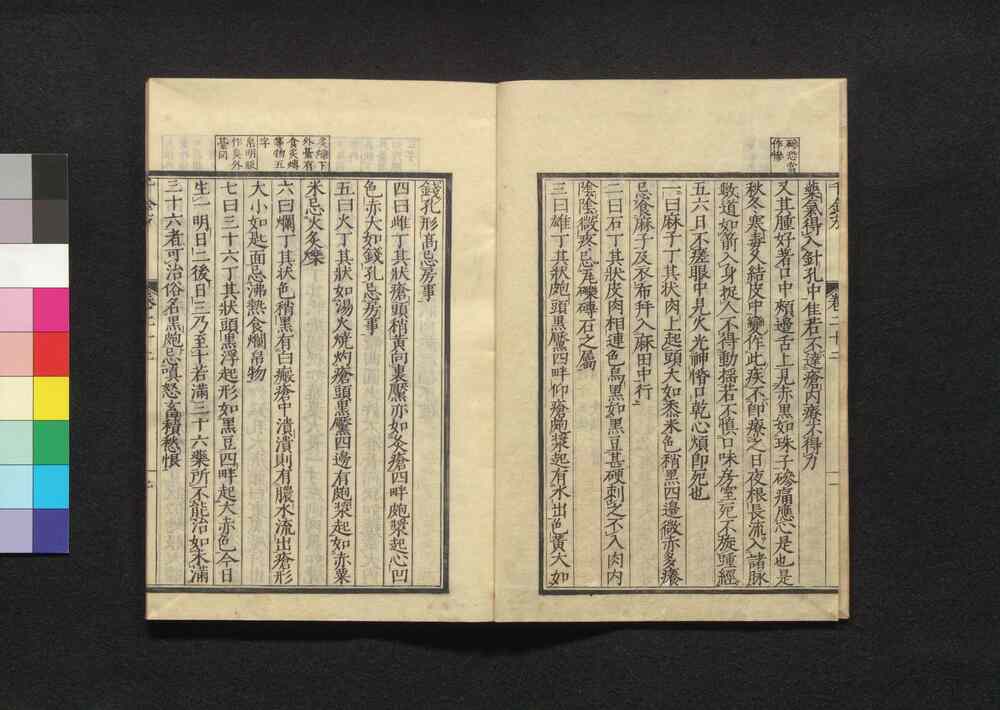 磣恐當
作慘
千金方
卷二十二
藥氣得入針孔中佳若不達瘡內療不得力
又其腫好著口中頰邊舌上見赤黑如珠子磣痛應心是也是
秋冬寒毒久結皮中變作此疾不即療之日夜根長流入諸脉
數道如箭入身捉人不得動搖若不慎口味房室死不旋踵經
五六日不瘥眼中見火光神惛口乾心煩即死也
一曰麻子丁其狀肉上起頭大如黍米色稍黑四邊微赤多癢
忌食麻子及衣布拜入麻田中行
二曰石丁其狀皮肉相連色烏黑如黑豆甚硬刺之不入肉內
陰陰微疼忌瓦礫磚石之屬
三曰雄丁其狀皰頭黑黶四畔仰瘡皰漿起有水出色黃大如
錢孔形高忌房事
四曰雌丁其狀瘡頭稍黃向裏黶亦如灸瘡四畔皰漿起心凹
色赤大如錢孔忌房事
五曰火丁其狀如湯火燒灼瘡頭黑黶四邊有皰漿起如赤粟
米忌火灸爍
六曰爛丁其狀色稍黑有白瘢瘡中潰潰則有膿水流出瘡形
大小如匙面忌沸熱食爛帛物
七曰三十六丁其狀頭黑浮起形如黑豆四畔起大赤色今日
生一明日二後日三乃至十若滿三十六藥所不能治如未滿
三十六者可治俗名黑皰忌嗔怒蓄積愁恨
外臺有
食炙煿
等物五
字
帛明版
作臭外
臺同